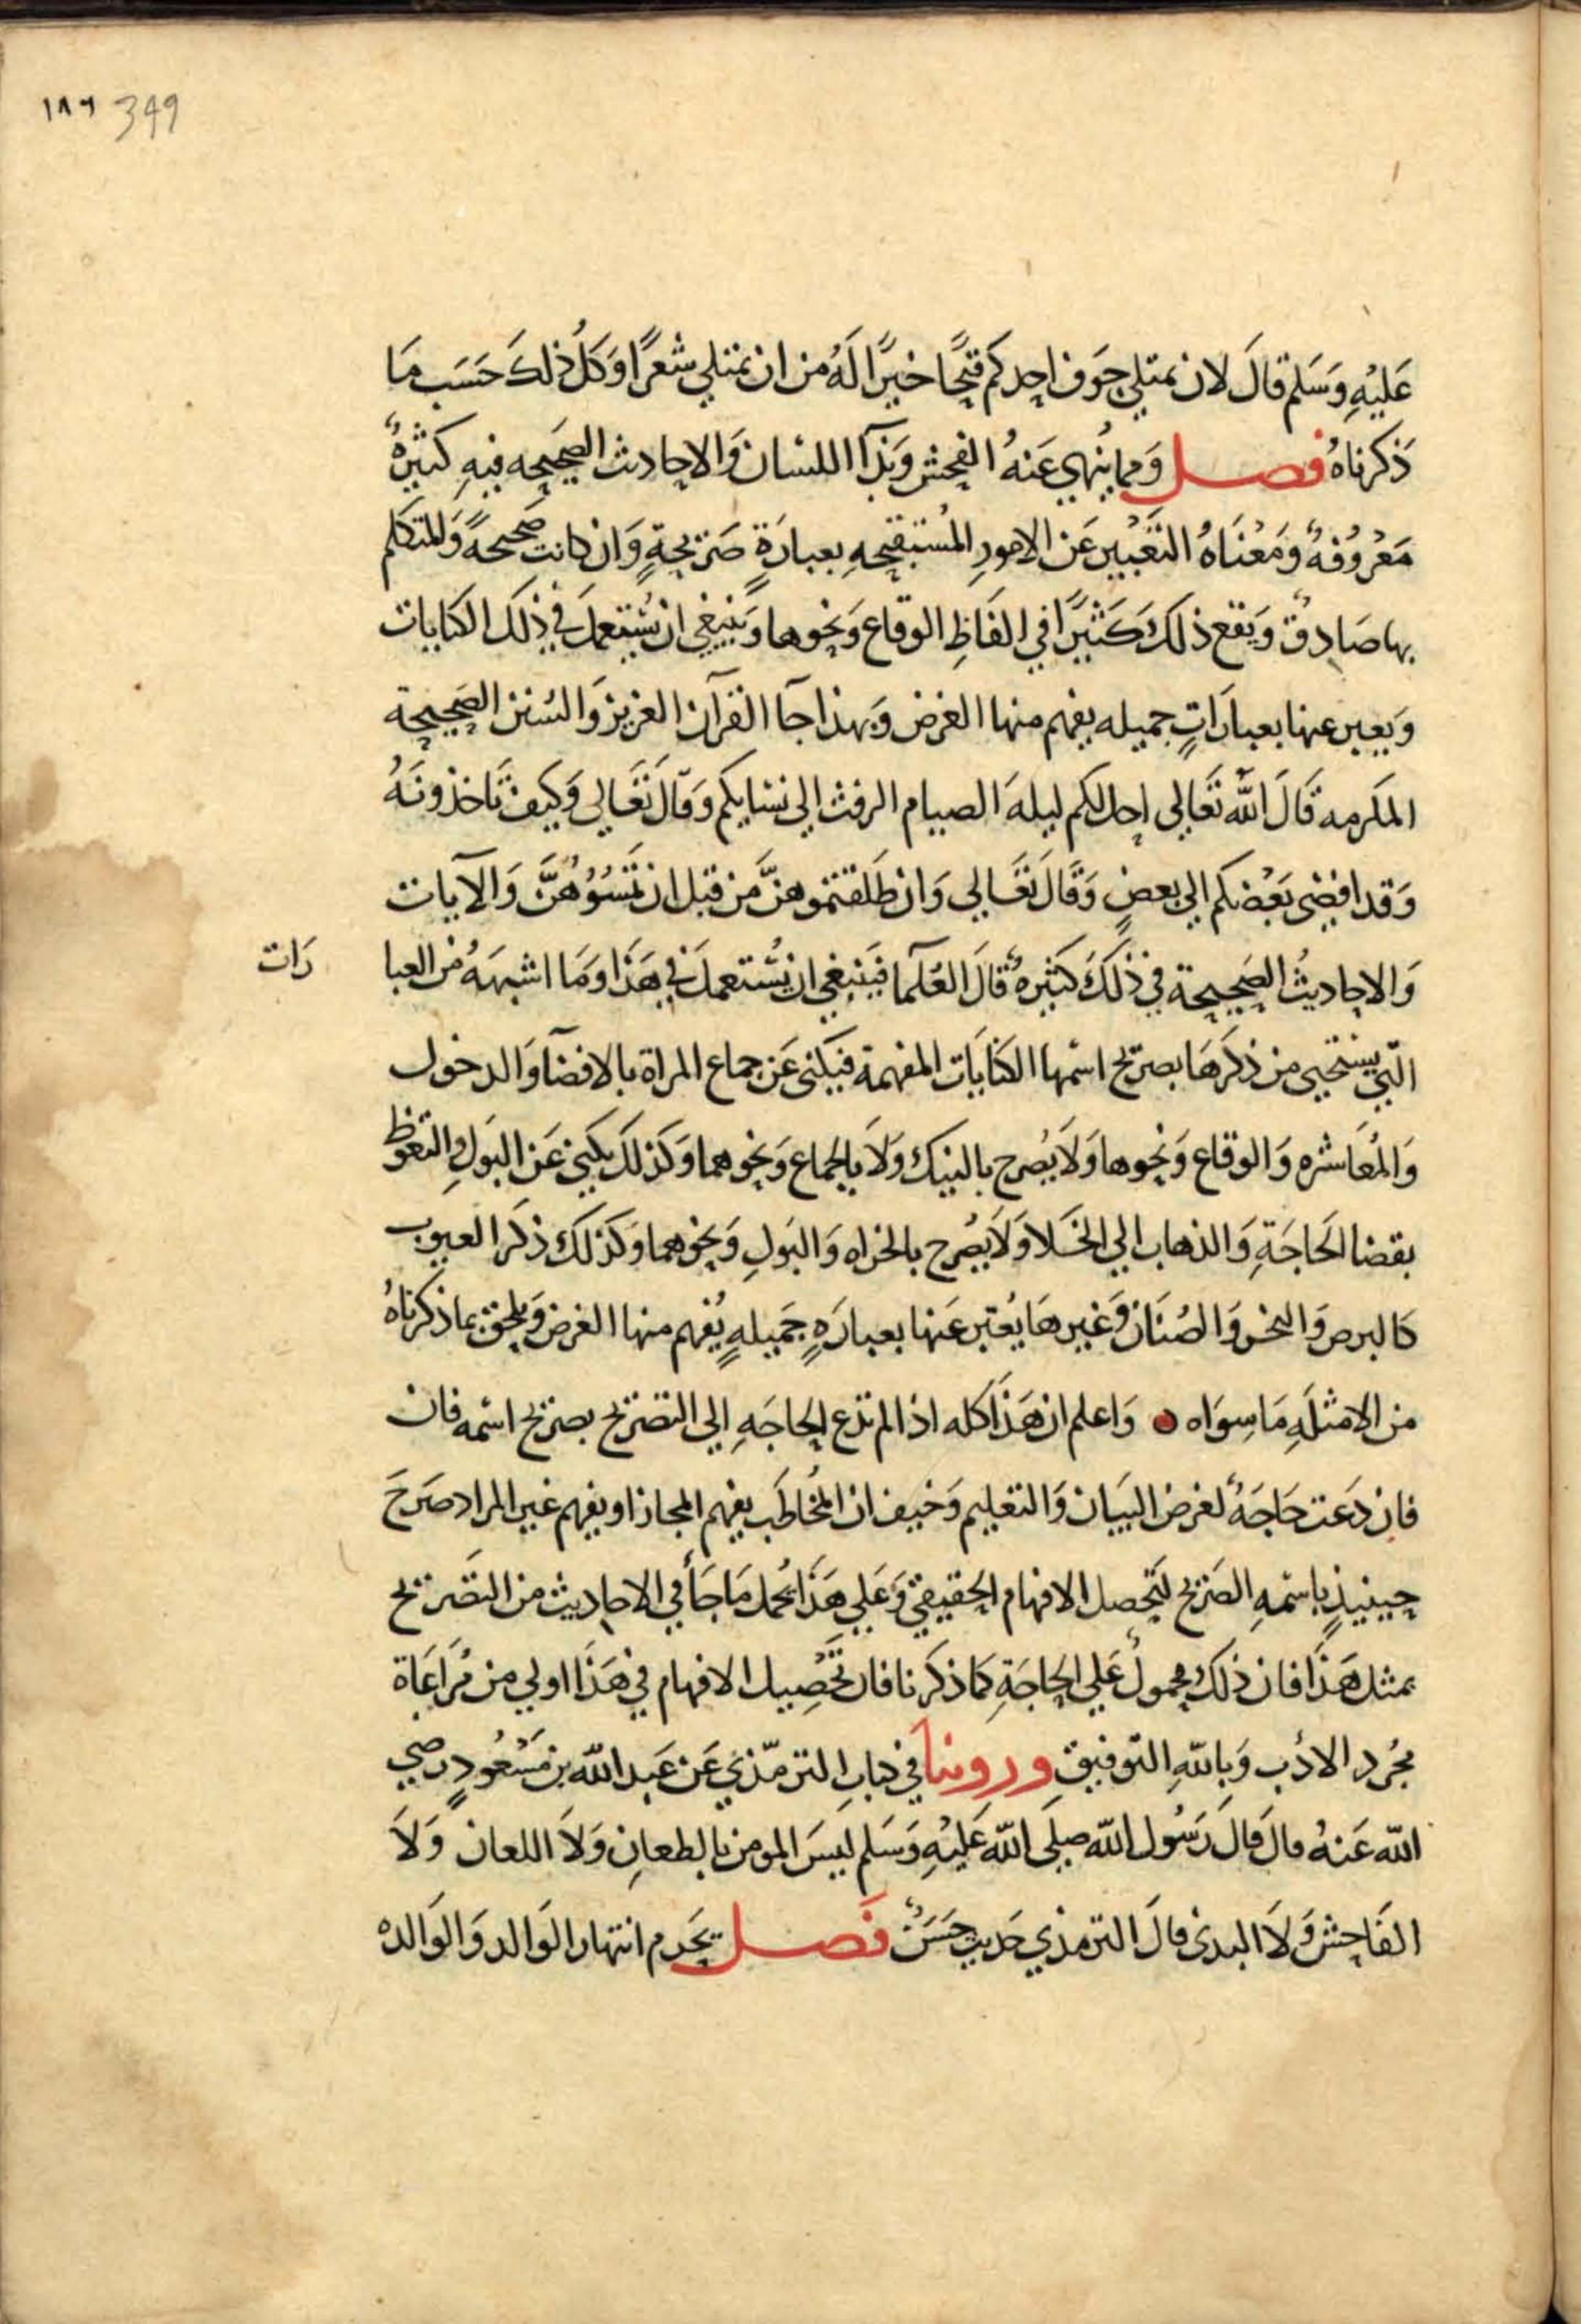 ١٨٦ 349
عَليْهِ وَسَلم قالَ لان يمتلي جَوف احدكم قيْحًا خيرًا لَهُ من ان يمتلي شعرًا وَكلُ ذلكَ حَسَب مَا
ذكرناهُ فصل وَمما يُنهي عَنهُ الفحش وَبَذآ اللسَان وَالاحادث الصحيحه فيهِ كثيرةٌ
مَعْرُوُفهٌ وَمَعْنَاهُ التَعْبْير عَن الامورِ المُستقبحهِ بعبارَةٍ صَريحةٍ وَان كانت صَحيحةً وَالمتكلم
بها صَادقٌ وَيَقع ذلكَ كَثيرًا في الفَاظِ الوقاع وَنحوها وَيَنبغي ان يُستعملَ في ذلكَ الكنايات
وَيعبر عنها بعبارَاتٍ جميله يفهم منها الغرض وَبهذا جآ القرآن العزيز وَالسُنن الصَحيحة
المكرمة قَالَ اللّه تَعَالى احل لكم ليلهَ الصيام الرفث الى نسايكم وَقالَ تَعَالى وَكيفَ تَاخذونَهُ
وَقد افضى بَعْضكم الي بعضٍ وَقَالَ تعَالي وَان طَلقتموهنَّ من قبل ان تَمَسُوُهُنَّ وَالآيات
وَالاحاديثُ الصَحيحة في ذلكَ كثيرهٌ قالَ العُلمآ فيَنبغي ان يُستعملَ في هَذا وَمَا اشبههُ من العبا رَات
التي يستحيى من ذكرَهَا بصريح اسمها الكنايَات المفهمة فيكنى عَن جماع المراة بالافضآ وَالدخول
وَالمُعَاشره وَالوقاع وَنحوها وَلاَ يُصرح بالنيك وَلاَ بالجماع وَنحوهما وَكذلكَ يكنى عَن البَولِ والتغوظ
بقضا الحَاجَةِ وَالذهاب الي الخَلا وَلاَ يُصرح بالخراه وَالبَولِ وَنحوهما وَكذلكَ ذكرَ العيوب
كالبرص وَالبخر وَالصُنَان وَغيرهَا يُعبر عَنها بعبارَةٍ جَميلهٍ يُفهم منها الغرض وَيلحق بما ذكرناهُ
من الامثلَهِ مَا سِوَاه ● وَاعلم ان هَذَا كله اذا لم تدع الحاجَهِ الي التصريح بصريح اسمه فان
فان دَعَت حَاجَهٌ لغرض البيَان وَالتعليم وَخيف ان المُخاطَب يفهم المجاز او يفهم غير المراد صَرحَ
حينيذٍ باسمهِ الصَريح لتَحصل الافهام الحقيقي وَعَلي هَذا يُحمل مَا جَأ في الاحاديث من التصَريح
بمثل هَذا فان ذلكَ محمولٌ عَلي الحاجَةِ كمَا ذكرَنا فان تَحْصِيل الافهام في هَذَا اولي من مُرَاعَاة
مُجرد الادَب وَباللّهِ التوفيق وروينا في كتابِ الترمّذي عَن عَبد اللّه بن مَسْعُودٍ رضي
اللّه عَنهُ قالَ قالَ رَسُول اللّه صلى اللّه عَليْهِ وَسَلم ليسَ المومن بالطعانِ وَلاَ اللعان وَلاَ
الفَاحش وَلاَ البدى قالَ الترمذي حَديث حَسَنٌ فَصل يَحرم انتهار الوَالد وَالوَالده